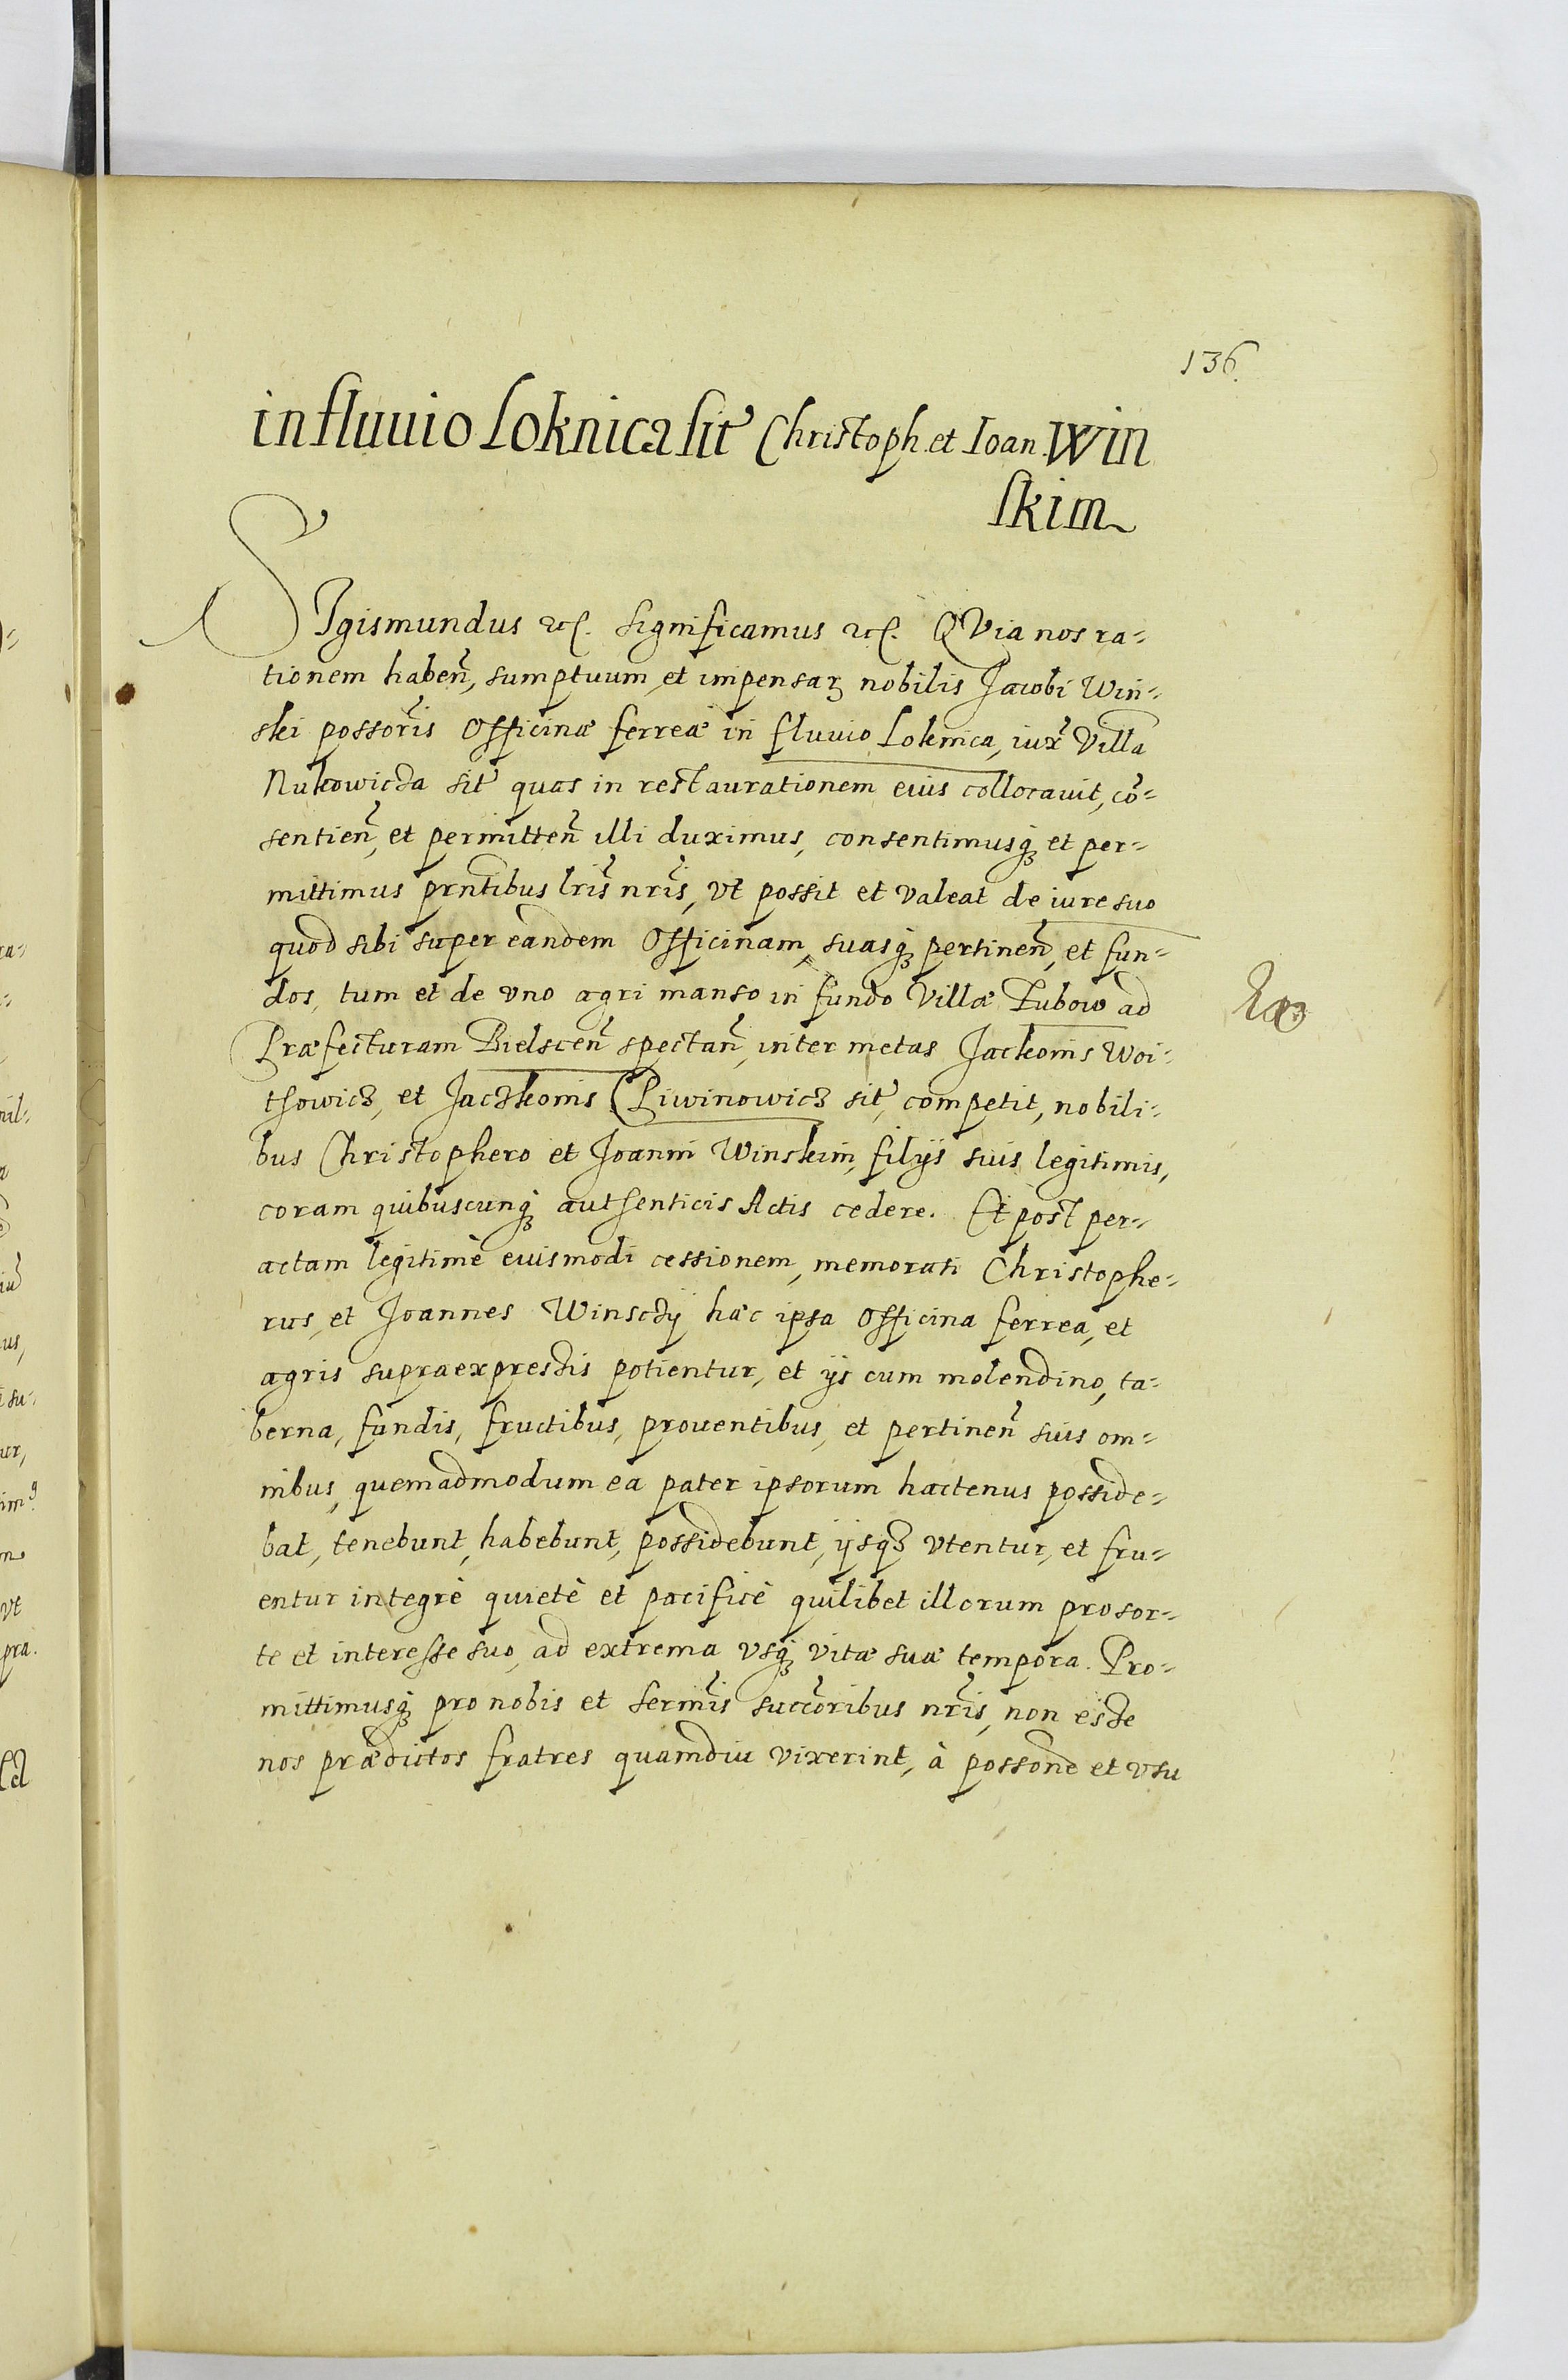 136.
in fluuio Loknica sit Christoph. et Ioan. Win
skim
SIgismundus etc. Significamus etc. QVia nos ra-
tionem haben, sumptuum et impensaꝝ nobilis Jacobi Win-
ski possoris Officinæ ferreæ in fluuio Loknica, iux Villa
Nukowicza sit quas in restaurationem eius collocauit, cō-
sentien, et permitten illi duximus, consentimusqꝫ et per-
mittimus prntibus lris nris, vt possit et valeat de iure suo
quod sibi super eandem Officinam, suasqꝫ pertinen, et fun-
dos, tum et de vno agri manso in fundo Villæ Lubow ad
Præfecturam Bielscen spectan, inter metas Jackonis Woi-
thowicz, et Jaczkonis Piwinowicz sit, competit, nobili-
bus Christophero et Joanni Winskim, filijs suis legitimis,
coram quibuscunqꝫ authenticis Actis cedere. Et post per-
actam legitimè euismodi cessionem, memorati Christophe-
rus, et Joannes Winsczÿ hac ipsa Officina ferrea, et
agris supraexpressis potientur, et ijs cum molendino, ta-
berna, fundis, fructibus, prouentibus, et pertinen suis om-
nibus, quemadmodum ea pater ipsorum hactenus posside-
bat, tenebunt, habebunt, possidebunt, ijsqꝫ vtentur, et fru-
entur integrè quietè et pacificè quilibet illorum pro sor-
te et interesse suo, ad extrema vsqꝫ vitæ suæ tempora. Pro-
mittimusqꝫ pro nobis et sermis succoribus nris, non esse
nos prædictos fratres quamdiu vixerint, à possone et vsu